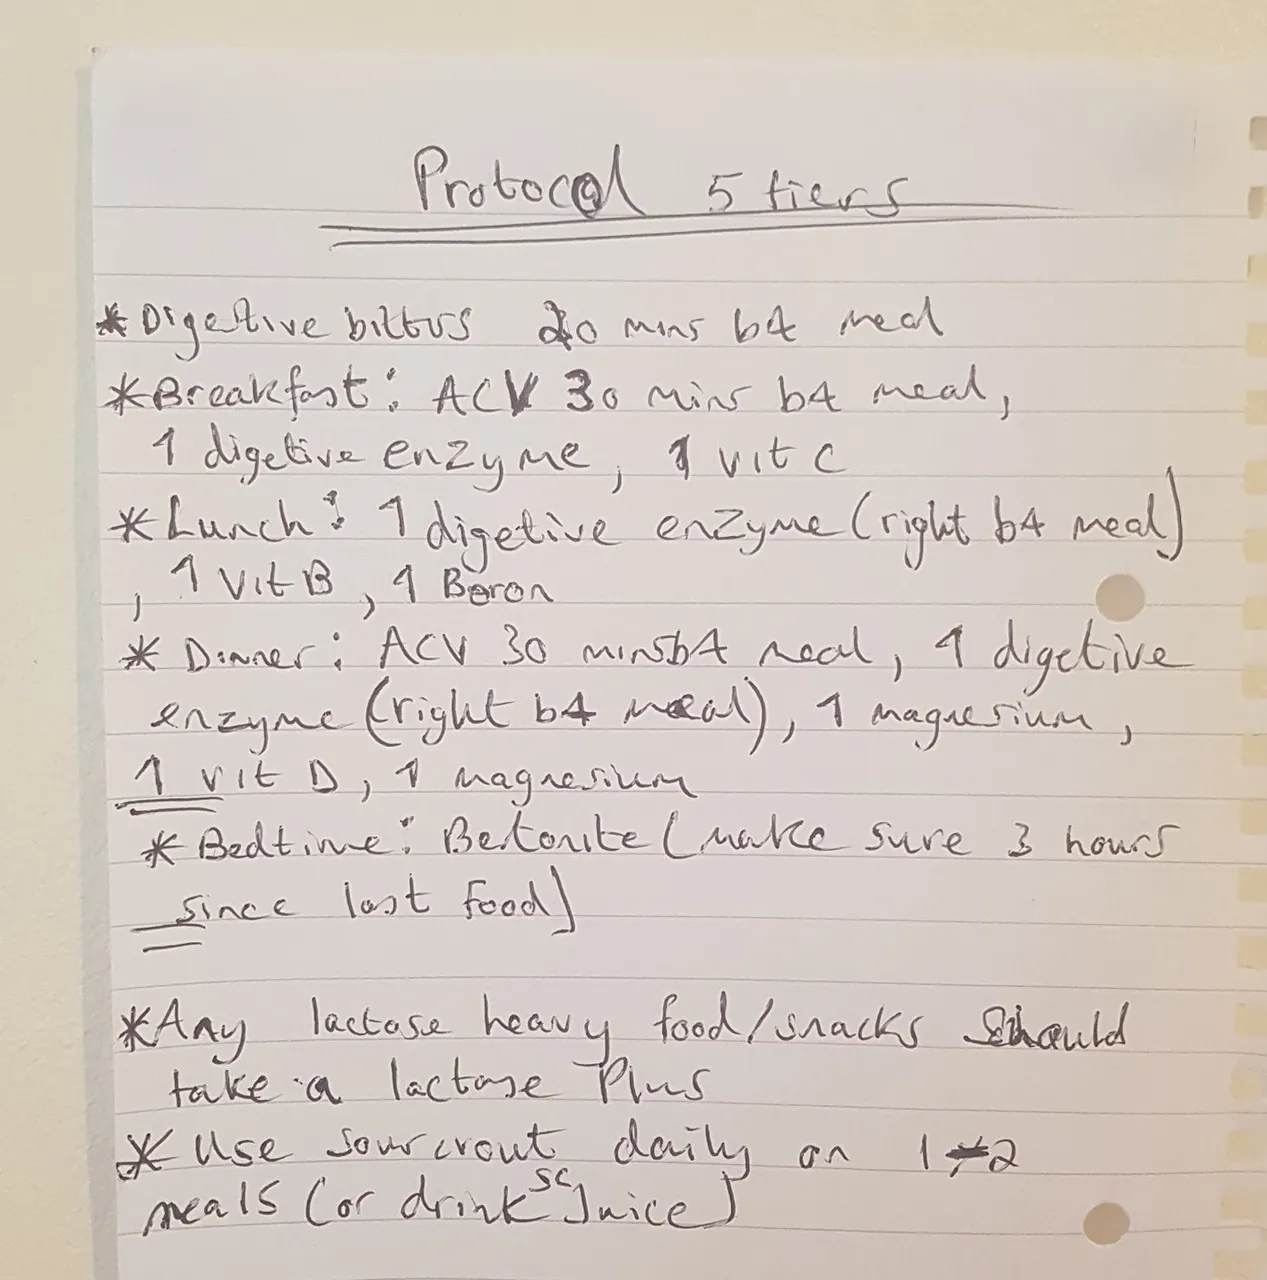 Protocol 5 tiers
* Digestive bitters 20 mins b4 meal
* Breakfast: ACV 30 mins b4 meal,
1 digetive enzyme, 1 vit C
* Lunch: 1 digetive enzyme (right b4 meal)
, 1 Vit B, 1 Boron
* Dinner: ACV 30 mins b4 meal, 1 digetive
enzyme (right b4 meal), 1 magnesium,
1 vit D, 1 magnesium
* Bedtime: Betonite (make sure 3 hours
since last food)
* Any lactose heavy food/snacks should
take a lactase Plus
* Use sourcrout daily on 1-2
meals (or drink SC Juice)